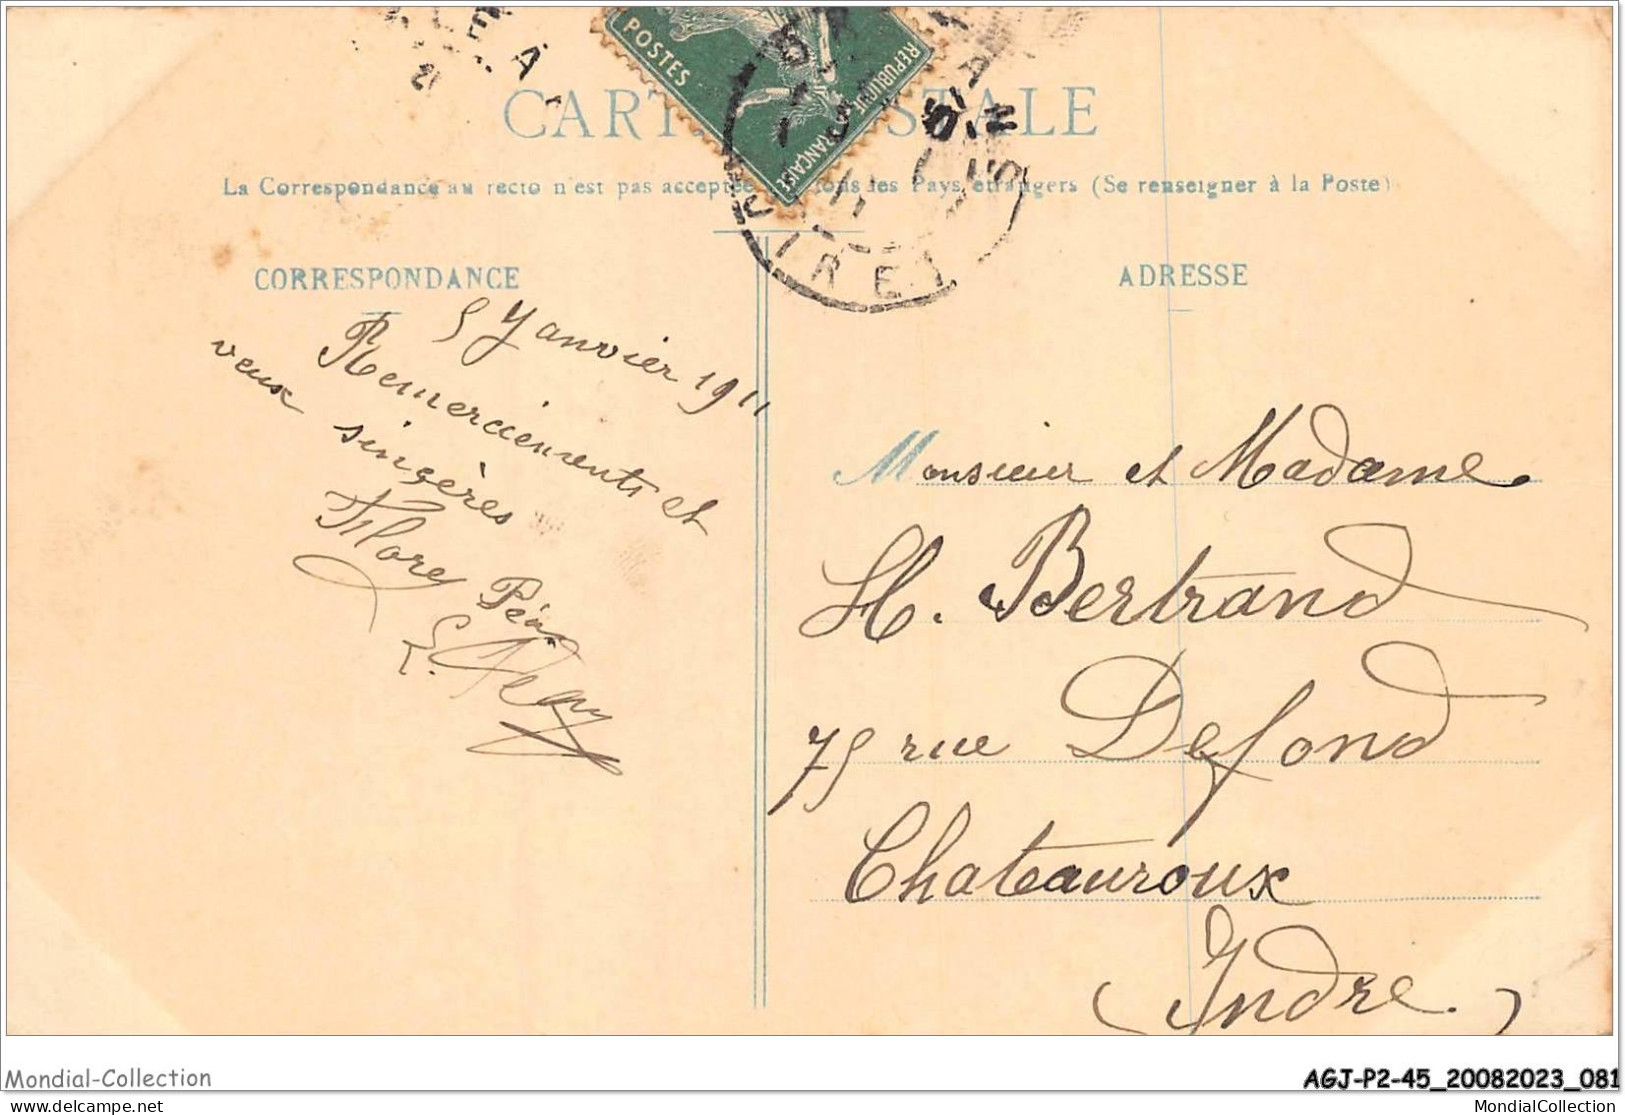 POSTES
REPUBLIQUE FRANÇAISE
CARTE POSTALE
La Correspondance au recto n'est pas acceptée par tous les Pays étrangers (Se renseigner à la Poste)
CORRESPONDANCE
5 Janvier 1911
Remerciements et
veux singères
Flore
ADRESSE
Monsieur et Madame
H. Bertrand
75 rue Defond
Chateauroux
(Indre.)
Mondial-Collection
AGJ-P2-45_20082023_081
www.delcampe.net
MondialCollection